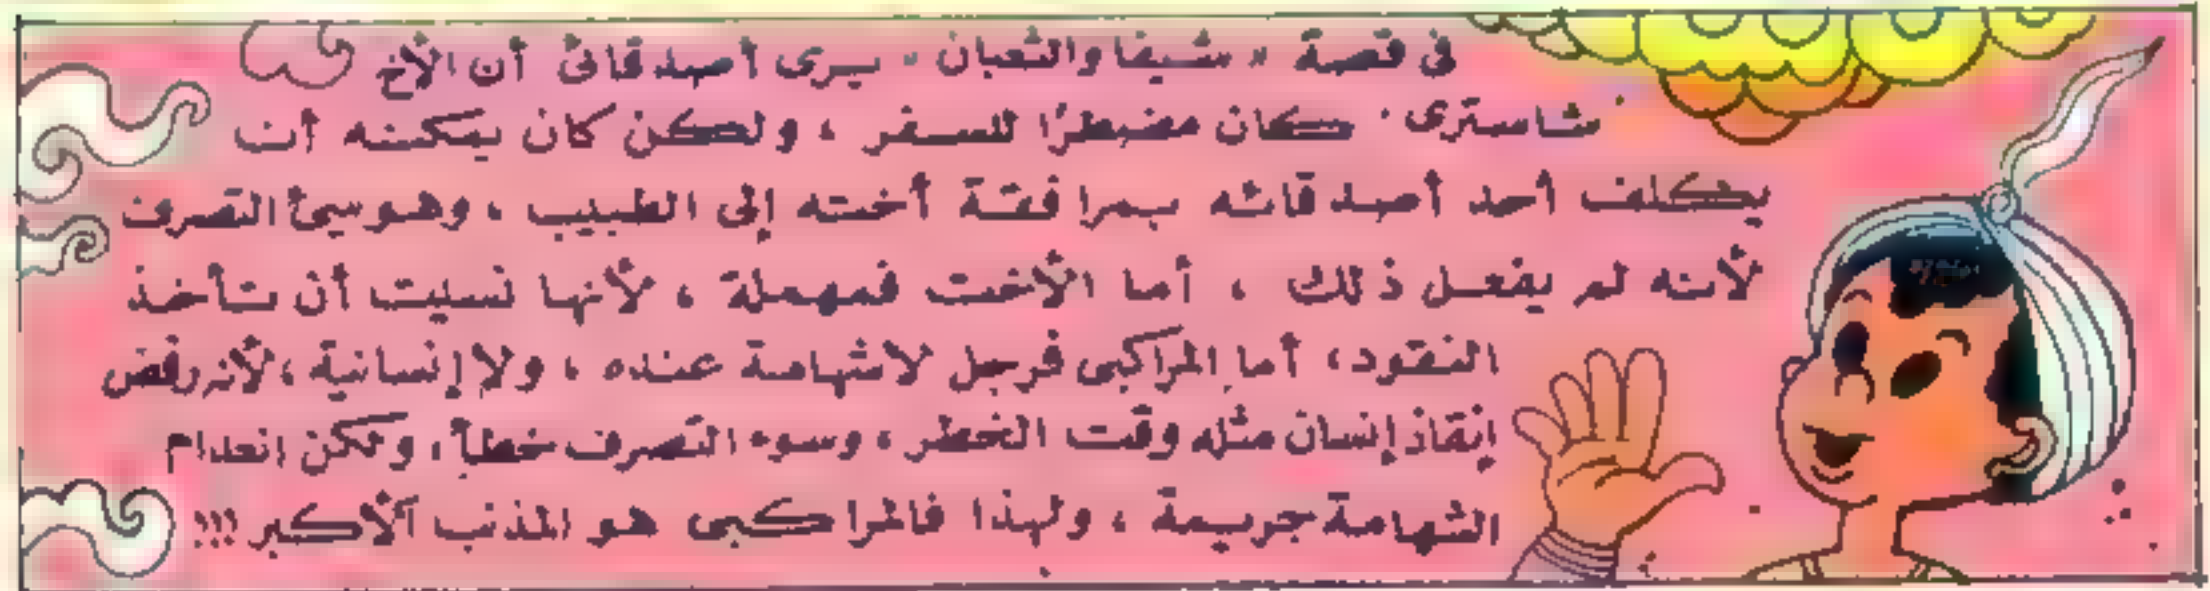 فى قصة « شيفا والثعبان » يرى أصدقائى أن الأخ
شاسترى . كان مضطرًا للسفر ، ولكن كان يمكنه أن
يكلف أحد أصدقائه بمرافقة أخته إلى الطبيب ، وهو سئ التصرف
لأنه لم يفعل ذلك ، أما الأخت فمهملة ، لأنها نسيت أن تأخذ
النقود ، أما المراكبى فرجل لا شهامة عنده ، ولا إنسانية ، لأنه رفض
إنقاذ إنسان مثله وقت الخطر ، وسوء التصرف خطأ ، ولكن انعدام
الشهامة جريمة ، ولهذا فالمراكبى هو المذنب الأكبر !!!